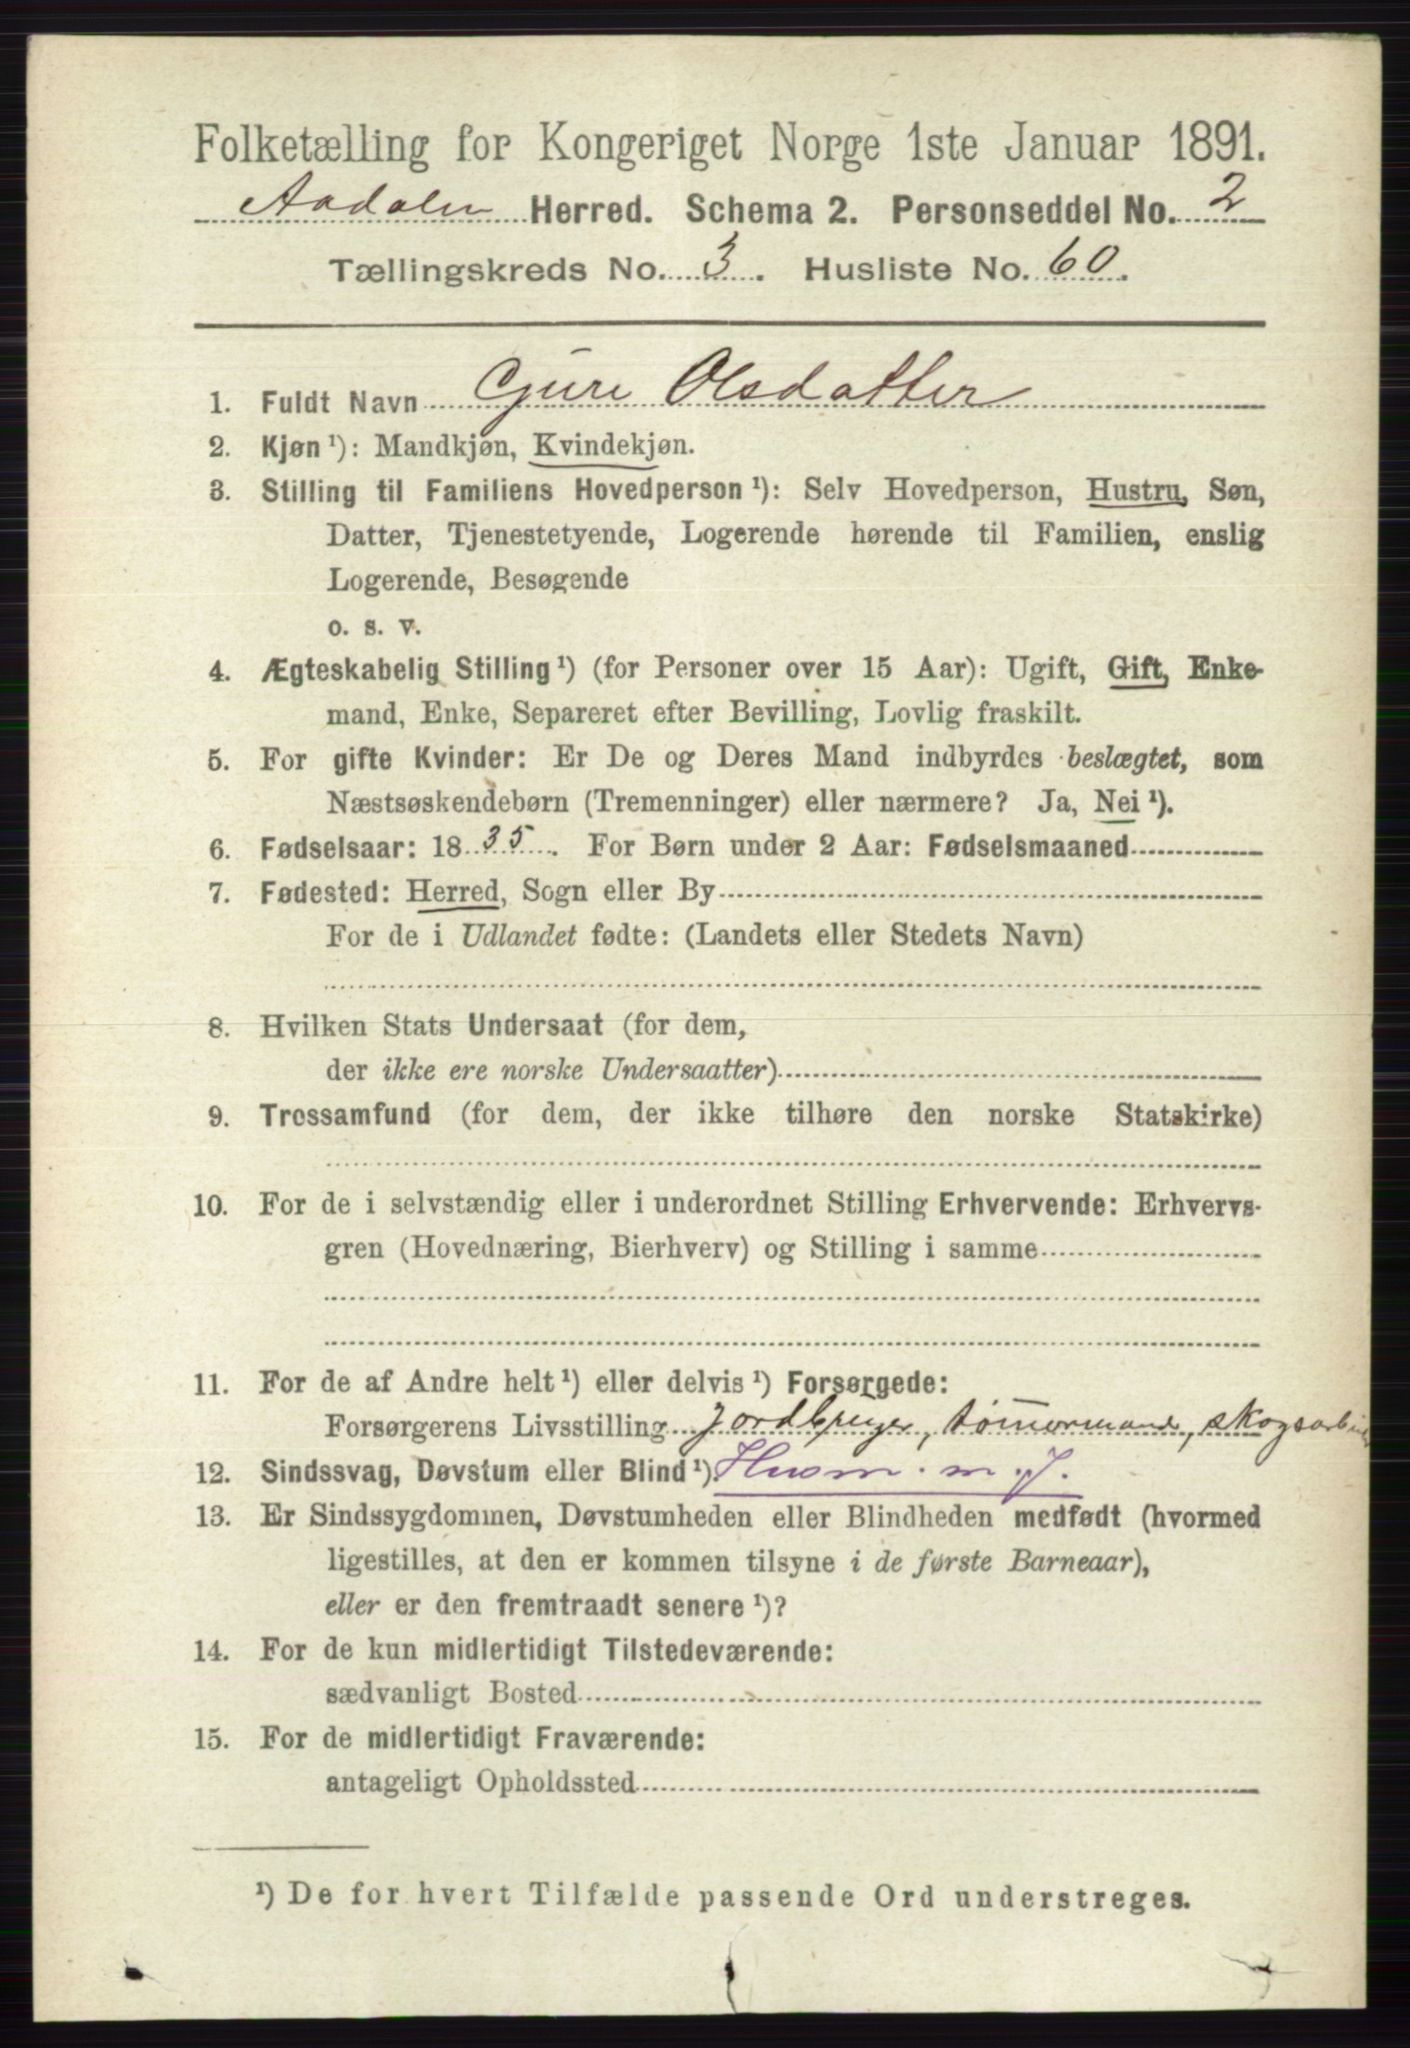 Folketælling for Kongeriget Norge 1ste Januar 1891.
Aadalen Herred. Schema 2. Personseddel No. 2
Tællingskreds No. 3. Husliste No. 60.
1. Fuldt Navn Gure Olsdatter
2. Kjøn¹): Mandkjøn, Kvindekjøn.
3. Stilling til Familiens Hovedperson¹): Selv Hovedperson, Hustru, Søn,
Datter, Tjenestetyende, Logerende hørende til Familien, enslig
Logerende, Besøgende
o. s. v.
4. Ægteskabelig Stilling¹) (for Personer over 15 Aar): Ugift, Gift, Enke-
mand, Enke, Separeret efter Bevilling, Lovlig fraskilt.
5. For gifte Kvinder: Er De og Deres Mand indbyrdes beslægtet, som
Næstsøskendebørn (Tremenninger) eller nærmere? Ja, Nei¹).
6. Fødselsaar: 1835. For Børn under 2 Aar: Fødselsmaaned
7. Fødested: Herred, Sogn eller By
For de i Udlandet fødte: (Landets eller Stedets Navn)
8. Hvilken Stats Undersaat (for dem,
der ikke ere norske Undersaatter)
9. Trossamfund (for dem, der ikke tilhøre den norske Statskirke)
10. For de i selvstændig eller i underordnet Stilling Erhvervende: Erhvervs-
gren (Hovednæring, Bierhverv) og Stilling i samme
11. For de af Andre helt¹) eller delvis¹) Forsørgede:
Forsørgerens Livsstilling Jordbruger, tømmermand, skogsarbeider
12. Sindssvag, Døvstum eller Blind¹). Husm. m. J.
13. Er Sindssygdommen, Døvstumheden eller Blindheden medfødt (hvormed
ligestilles, at den er kommen tilsyne i de første Barneaar),
eller er den fremtraadt senere¹)?
14. For de kun midlertidigt Tilstedeværende:
sædvanligt Bosted
15. For de midlertidigt Fraværende:
antageligt Opholdssted
¹) De for hvert Tilfælde passende Ord understreges.